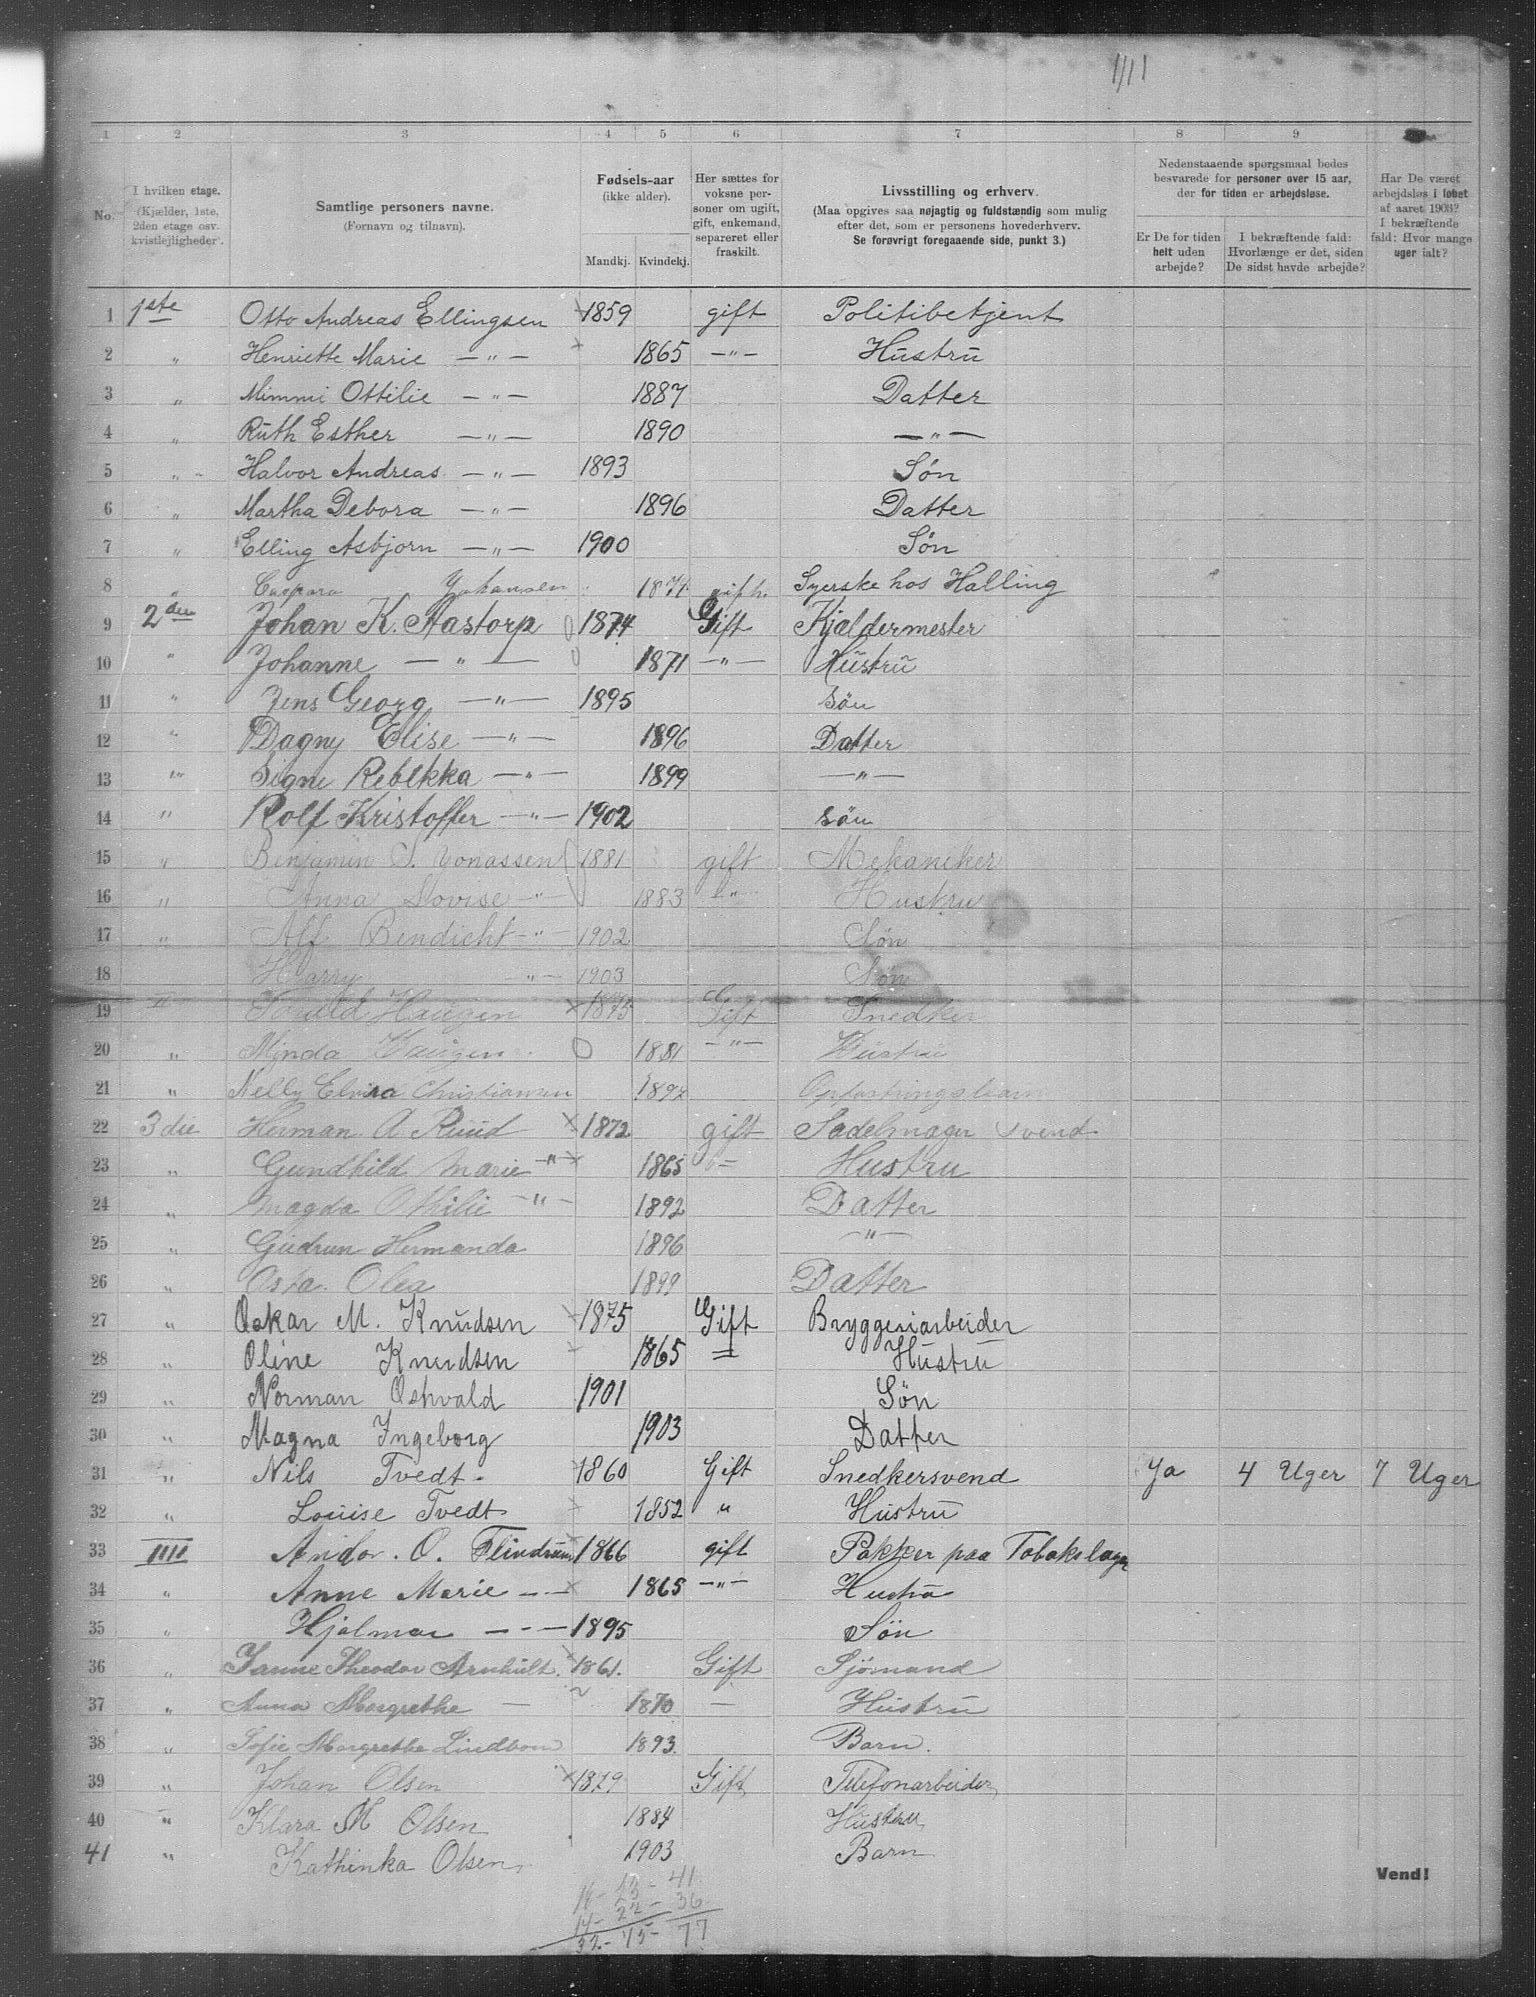 1 2 3 4 5 6 7 8 9
No.
I hvilken etage. (Kjælder, 1ste, 2den etage osv. kvistlejligheder).
Samtlige personers navne. (Fornavn og tilnavn).
Fødsels-aar (ikke alder).
Mandkj. Kvindekj.
Her sættes for voksne personer om ugift, gift, enkemand, separeret eller fraskilt.
Livsstilling og erhverv.
(Maa opgives saa nøjagtig og fuldstændig som mulig efter det, som er personens hovederhverv. Se forøvrigt foregaaende side, punkt 3.)
Nedenstaaende spørgsmaal bedes besvarede for personer over 15 aar, der for tiden er arbejdsløse.
Er De for tiden helt uden arbejde?
I bekræftende fald: Hvorlænge er det, siden De sidst havde arbejde?
Har De været arbejdsløs i løbet af aaret 1903? I bekræftende fald: Hvor mange uger ialt?
1 1ste Otto Andreas Ellingsen 1859 gift Politibetjent
2 " Henriette Marie —"— 1865 —"— Hustru
3 " Mimmi Ottilie —"— 1887 Datter
4 " Ruth Esther —"— 1890 —"—
5 " Halvor Andreas —"— 1893 Søn
6 " Martha Debora —"— 1896 Datter
7 " Elling Asbjorn —"— 1900 Søn
8 " Caspara Johansen 1871 Syerske hos Halling
9 2den Johan K. Aastorp 1874 Gift Kjældermester
10 " Johanne —"— 1871 —"— Hustru
11 " Jens Georg —"— 1895 Søn
12 " Dagny Elise —"— 1896 Datter
13 " Signe Rebekka —"— 1899 —"—
14 " Rolf Kristoffer —"— 1902 Søn
15 " Benjamin S. Jonassen 1881 gift Mekaniker
16 " Anna Lovise —"— 1883 —"— Hustru
17 " Alf Bendicht —"— 1902 Søn
18 Harry —"— 1903 Søn
19 " Haugen 1875 Gift Snedker
20 " Minda Haugen 1881 —"— Hustru
21 " Nelly Elvira Christiansen 1897
22 3die Herman A Ruud 1872 gift Sadelmager Svend
23 " Gundhild Marie —"— 1865 Hustru
24 " Magda Othilie —"— 1892 Datter
25 " Gudrun Hermanda 1896 —"—
26 " Asta Olea 1899 Datter
27 " Oskar M. Knudsen 1875 Gift Bryggeriarbeider
28 " Oline Knudsen 1865 = Hustru
29 " Norman Oshvald 1901 Søn
30 " Magna Ingeborg 1903 Datter
31 " Nils Tvedt. 1860 Gift Snedkersvend Ja 4 Uger 7 Uger
32 " Louise Tvedt 1852 " Hustru
33 IIII Andor. O. Flindrum 1866 gift Pakker paa Tobakslager
34 " Anne Marie —"— 1865 —"— Hustru
35 " Hjalmar —"— 1895 Søn
36 " Janne Theodor Arnhult. 1861. Gift Sjömand
37 " Anna Margrethe — 1870 — Hustru
38 " Sofie Margrethe Lindbom 1893. Barn.
39 " Johan Olsen 1879 Gift Telefonarbeider
40 " Klara M Olsen 1884 Hustru
41 " Kathinka Olsen 1903 Barn
Vend!